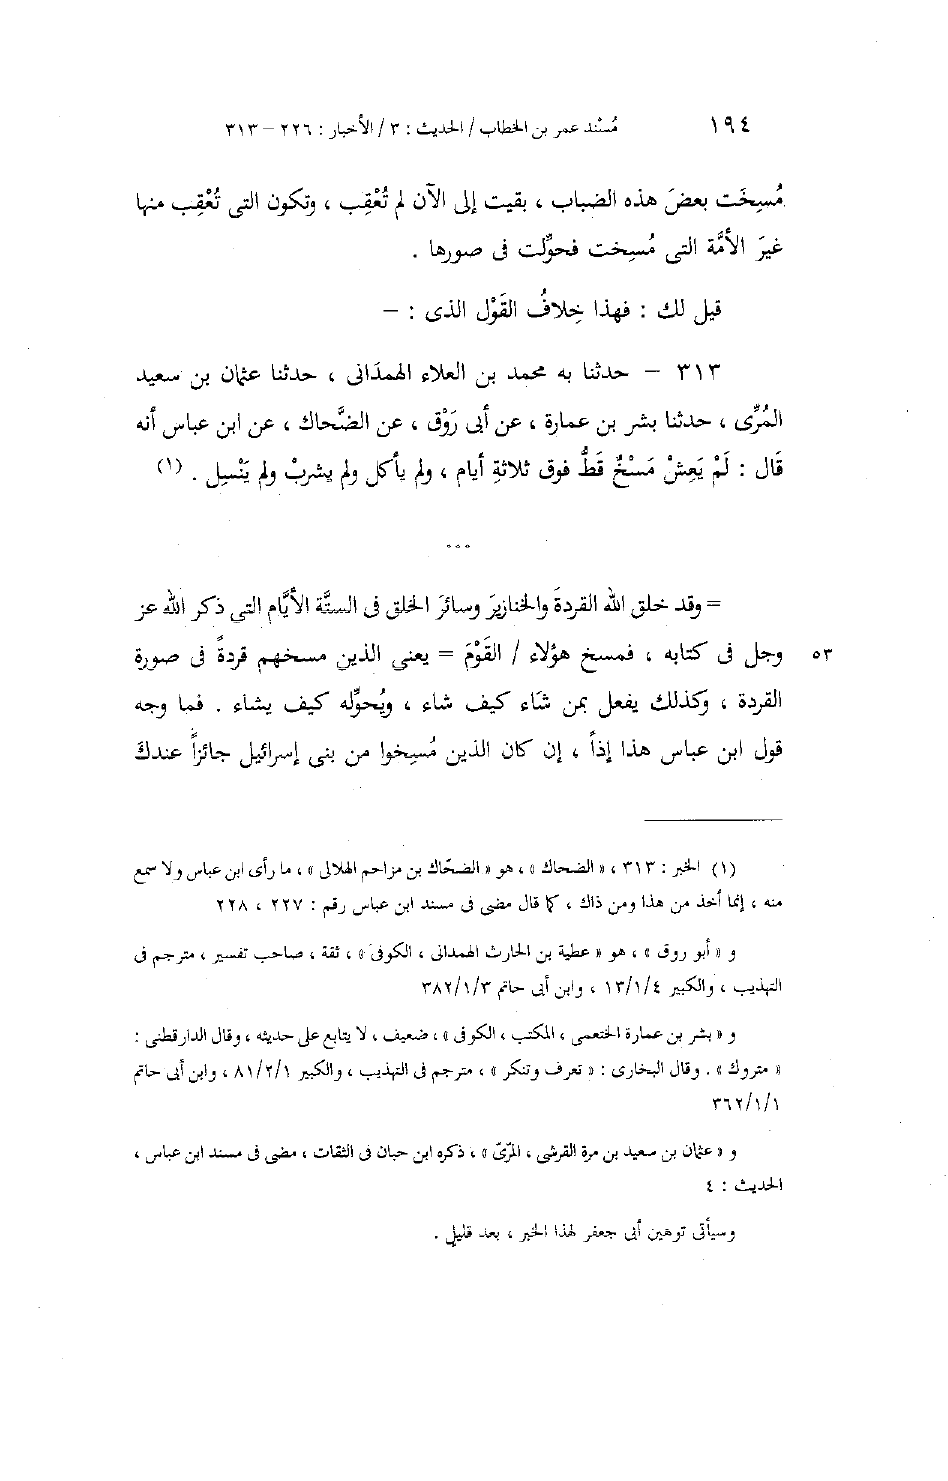 ١٩٤ مُسْند عمر بن الخطاب / الحديث : ٣ / الأخبار : ٢٢٦ – ٣١٣
مُسِخَت بعضَ هذه الضباب ، بقيت إلى الآن لم تُعْقِب ، وتكون التى تُعْقِب منها
غيرَ الأمَّة التى مُسِخت فحوِّلت فى صورها .
قيل لك : فهذا خِلافُ القَوْل الذى : –
٣١٣ – حدثنا به محمد بن العلاء الهمدَانى ، حدثنا عثمان بن سعيد
المُرِّى ، حدثنا بشر بن عمارة ، عن أبى رَوْق ، عن الضَّحاك ، عن ابن عباس أنه
قَال : لَمْ يَعِشْ مَسْخٌ قَطُّ فوق ثلاثةِ أيام ، ولم يأكل ولم يشربْ ولم يَنْسِل . (١)
°°°
= وقد خلق الله القردةَ والخنازيرَ وسائرَ الخلق فى الستَّة الأيَّام التي ذكر الله عز
٥٣ وجل فى كتابه ، فمسخ هؤلاء / القَوْمَ = يعني الذين مسخهم قردةً فى صورة
القردة ، وكذلك يفعل بمن شَاء كيف شاء ، ويُحوِّله كيف يشاء . فما وجه
قول ابن عباس هذا إذاً ، إن كان الذين مُسِخوا من بنى إسرائيل جائزاً عندك
(١) الخبر : ٣١٣ ، « الضحاك » ، هو « الضحّاك بن مزاحم الهلالى » ، ما رأى ابن عباس ولا سمع
منه ، إنما أخذ من هذا ومن ذاك ، كما قال مضى فى مسند ابن عباس رقم : ٢٢٧ ، ٢٢٨
و « أبو روق » ، هو « عطية بن الحارث الهمدانى ، الكوفى » ، ثقة ، صاحب تفسير ، مترجم فى
التهذيب ، والكبير ١٣/١/٤ ، وابن أبى حاتم ٣٨٢/١/٣
و « بشر بن عمارة الخثعمى ، المكتب ، الكوفى » ، ضعيف ، لا يتابع على حديثه ، وقال الدارقطنى :
« متروك » . وقال البخارى : « تعرف وتنكر » ، مترجم فى التهذيب ، والكبير ٨١/٢/١ ، وابن أبى حاتم
٣٦٢/١/١
و « عثمان بن سعيد بن مرة القرشى ، المرّىّ » ، ذكره ابن حبان فى الثقات ، مضى فى مسند ابن عباس ،
الحديث : ٤
وسيأتى توهين أبى جعفر لهذا الخبر ، بعد قليل .